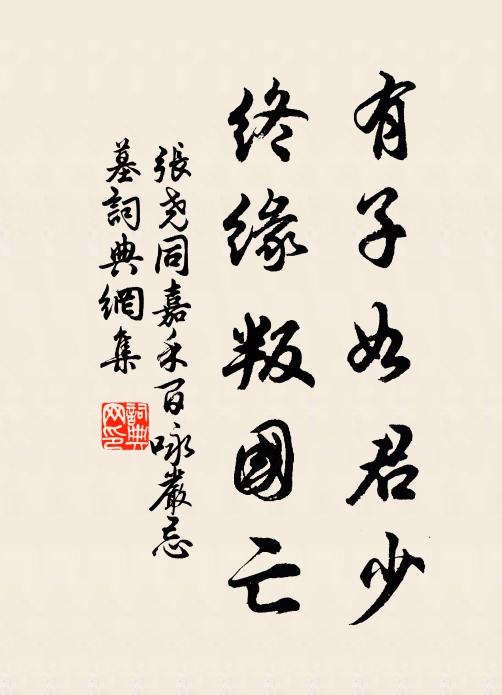 有子如君少
終緣叛國亡
張堯同嘉禾百咏嚴忌
墓詞典網集
詞典网印